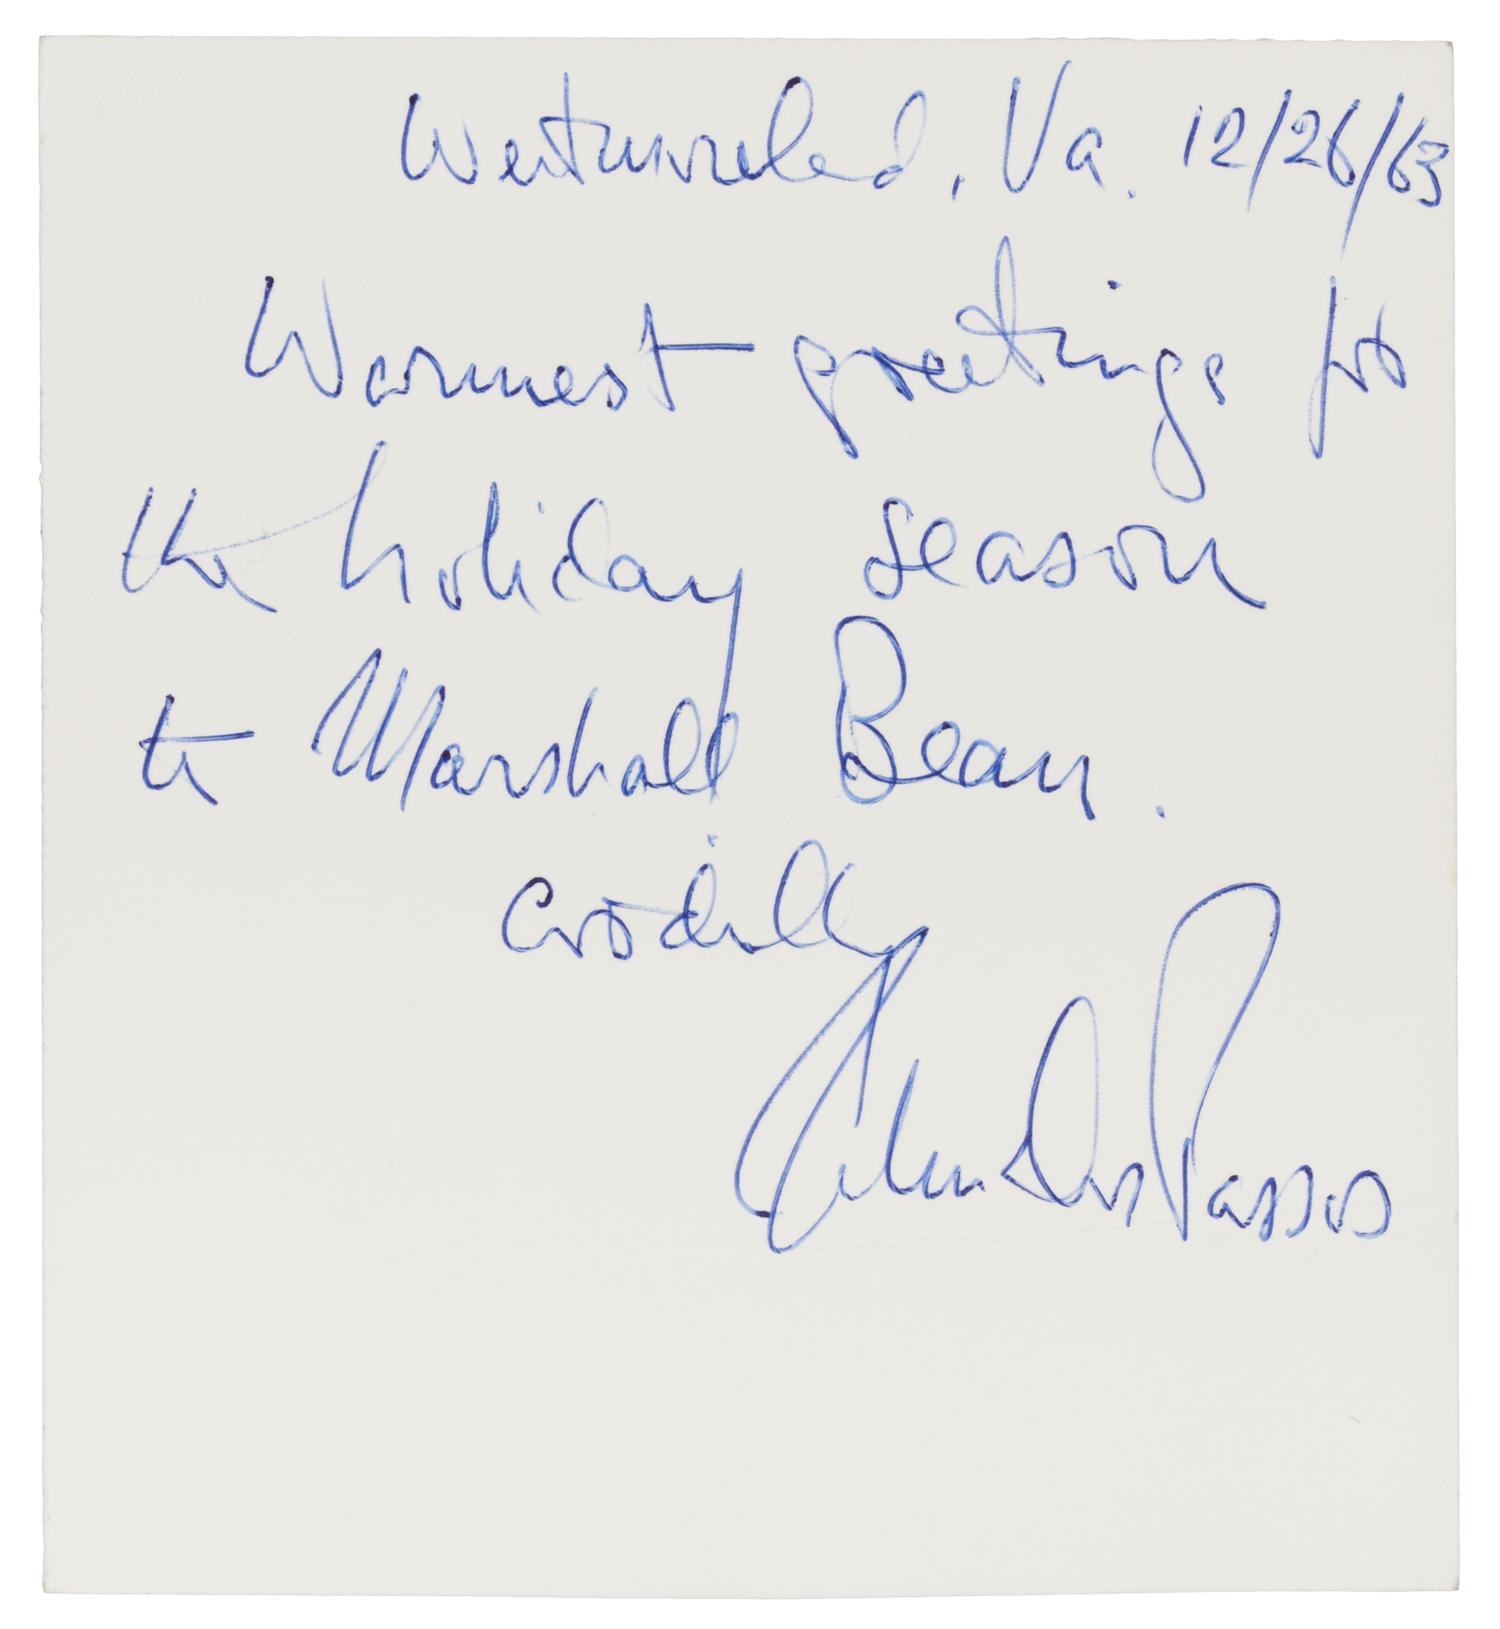 Westmoreland, Va. 12/26/63
Warmest greetings for
the holiday season
to Marshall Bean.
Cordially
John Dos Passos